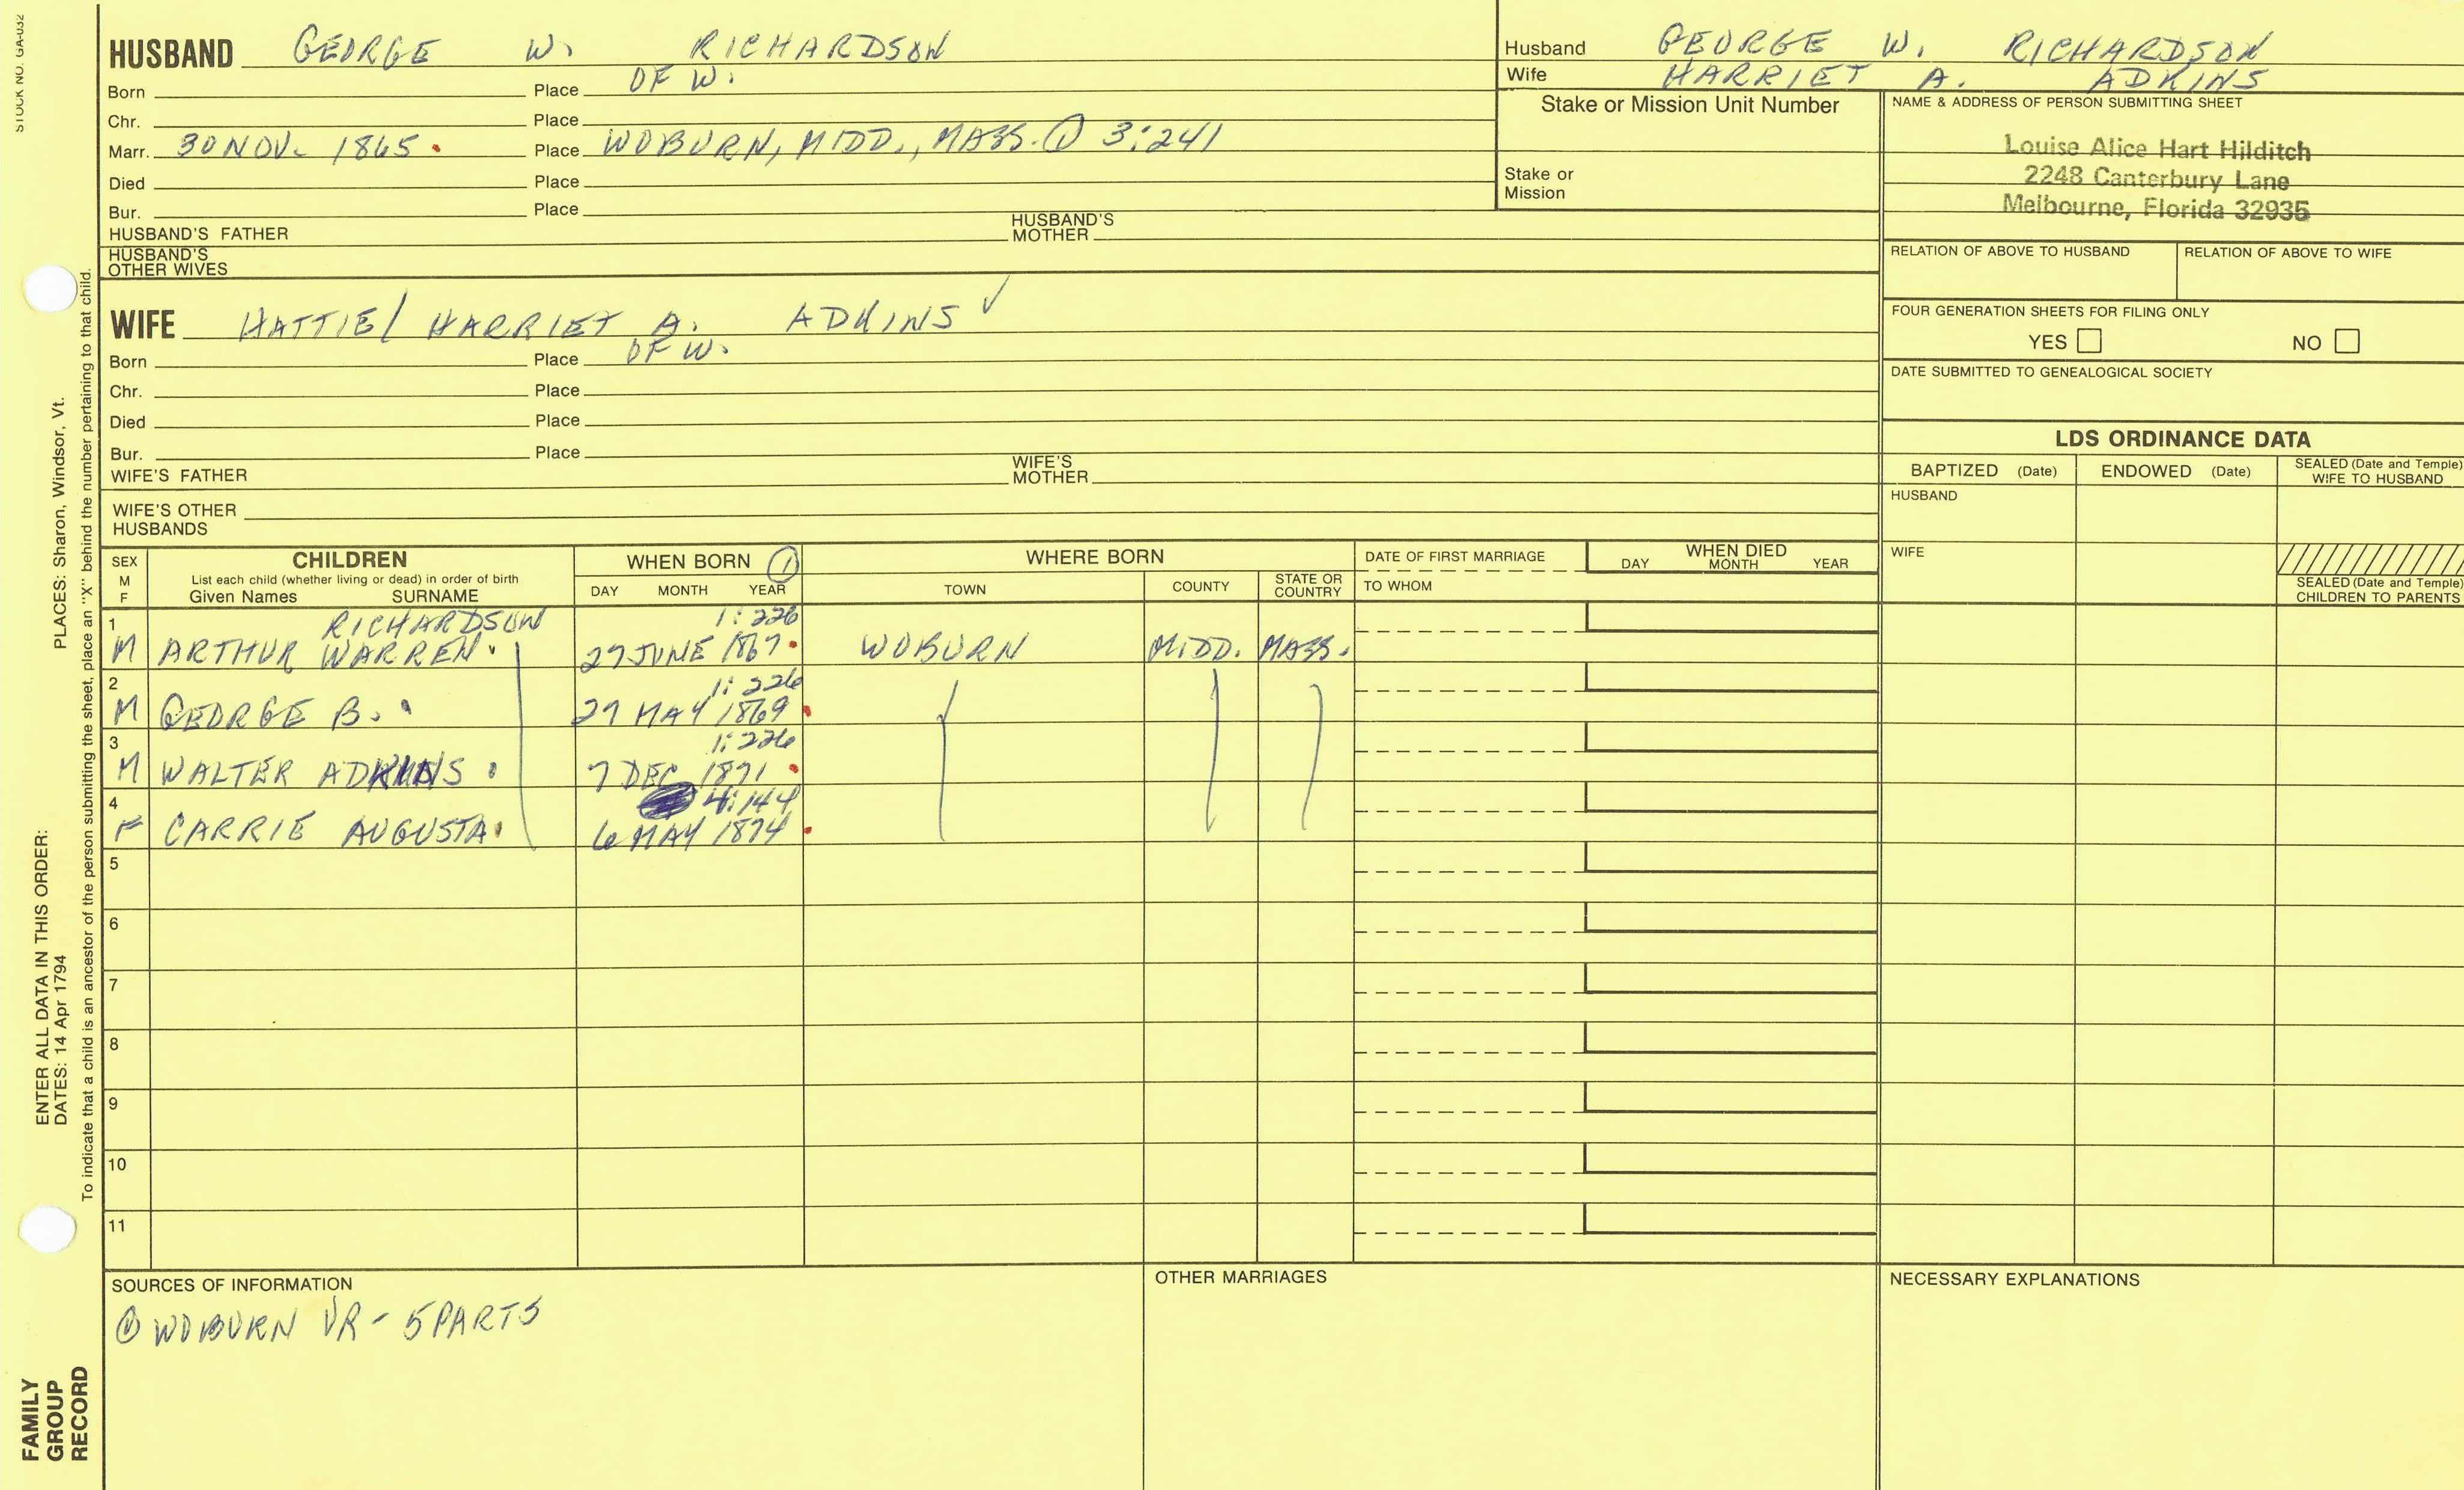 STOCK NO. GA-032
HUSBAND GEORGE W. RICHARDSON
Born Place OF W.
Chr. Place
Marr. 30 NOV. 1865 Place WOBURN, MIDD., MASS. ① 3:241
Died Place
Bur. Place
HUSBAND'S FATHER HUSBAND'S MOTHER
HUSBAND'S OTHER WIVES
WIFE HATTIE/ HARRIET A. ADKINS ✓
Born Place OF W.
Chr. Place
Died Place
Bur. Place
WIFE'S FATHER WIFE'S MOTHER
WIFE'S OTHER HUSBANDS
Husband GEORGE W. RICHARDSON
Wife HARRIET A. ADKINS
Stake or Mission Unit Number
Stake or Mission
NAME & ADDRESS OF PERSON SUBMITTING SHEET
Louise Alice Hart Hilditch
2248 Canterbury Lane
Melbourne, Florida 32935
RELATION OF ABOVE TO HUSBAND RELATION OF ABOVE TO WIFE
FOUR GENERATION SHEETS FOR FILING ONLY
YES NO
DATE SUBMITTED TO GENEALOGICAL SOCIETY
LDS ORDINANCE DATA
BAPTIZED (Date) ENDOWED (Date) SEALED (Date and Temple) WIFE TO HUSBAND
HUSBAND
WIFE
SEALED (Date and Temple) CHILDREN TO PARENTS
SEX M F
CHILDREN
List each child (whether living or dead) in order of birth
Given Names SURNAME
WHEN BORN ①
DAY MONTH YEAR
WHERE BORN
TOWN COUNTY STATE OR COUNTRY
DATE OF FIRST MARRIAGE
TO WHOM
WHEN DIED
DAY MONTH YEAR
1 RICHARDSON 1:226
M ARTHUR WARREN 27 JUNE 1867 WOBURN MIDD. MASS.
2 1:226
M GEORGE B. 29 MAY 1869
3 1:226
M WALTER ADKINS 7 DEC 1871
4 4:144
F CARRIE AUGUSTA 6 MAY 1874
5
6
7
8
9
10
11
SOURCES OF INFORMATION
① WOBURN VR - 5 PARTS
OTHER MARRIAGES
NECESSARY EXPLANATIONS
ENTER ALL DATA IN THIS ORDER:
DATES: 14 Apr 1794 PLACES: Sharon, Windsor, Vt.
To indicate that a child is an ancestor of the person submitting the sheet, place an "X" behind the number pertaining to that child.
FAMILY
GROUP
RECORD